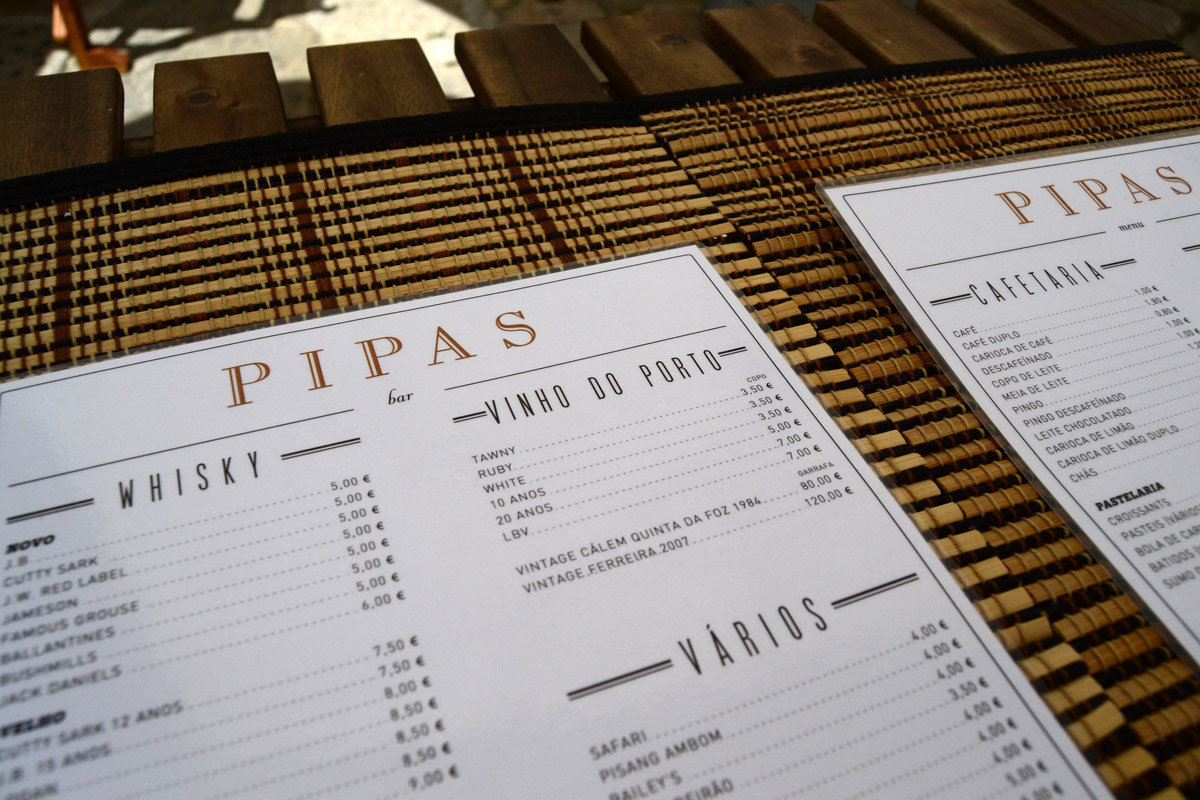 PIPAS
bar
WHISKY
NOVO
J.B. 5,00 €
CUTTY SARK 5,00 €
J.W. RED LABEL 5,00 €
JAMESON 5,00 €
FAMOUS GROUSE 5,00 €
BALLANTINES 5,00 €
BUSHMILLS 5,00 €
JACK DANIELS 6,00 €
VELHO
CUTTY SARK 12 ANOS 7,50 €
J.B. 15 ANOS 7,50 €
8,00 €
8,50 €
8,50 €
8,50 €
9,00 €
VINHO DO PORTO
COPO
TAWNY 3,50 €
RUBY 3,50 €
WHITE 3,50 €
10 ANOS 5,00 €
20 ANOS 7,00 €
LBV 7,00 €
GARRAFA
VINTAGE CÁLEM QUINTA DA FOZ 1984 80,00 €
VINTAGE FERREIRA 2007 120,00 €
VÁRIOS
SAFARI 4,00 €
PISANG AMBOM 4,00 €
BAILEY'S 4,00 €
3,50 €
4,00 €
4,00 €
4,00 €
5,00 €
PIPAS
menu
CAFETARIA
CAFÉ 1,00 €
CAFÉ DUPLO 1,80 €
CARIOCA DE CAFÉ 0,80 €
DESCAFEÍNADO 1,00 €
COPO DE LEITE
MEIA DE LEITE
PINGO
PINGO DESCAFEÍNADO
LEITE CHOCOLATADO
CARIOCA DE LIMÃO
CARIOCA DE LIMÃO DUPLO
CHÁS
PASTELARIA
CROISSANTS
PASTEIS
BOLA DE
BATIDOS
SUMO